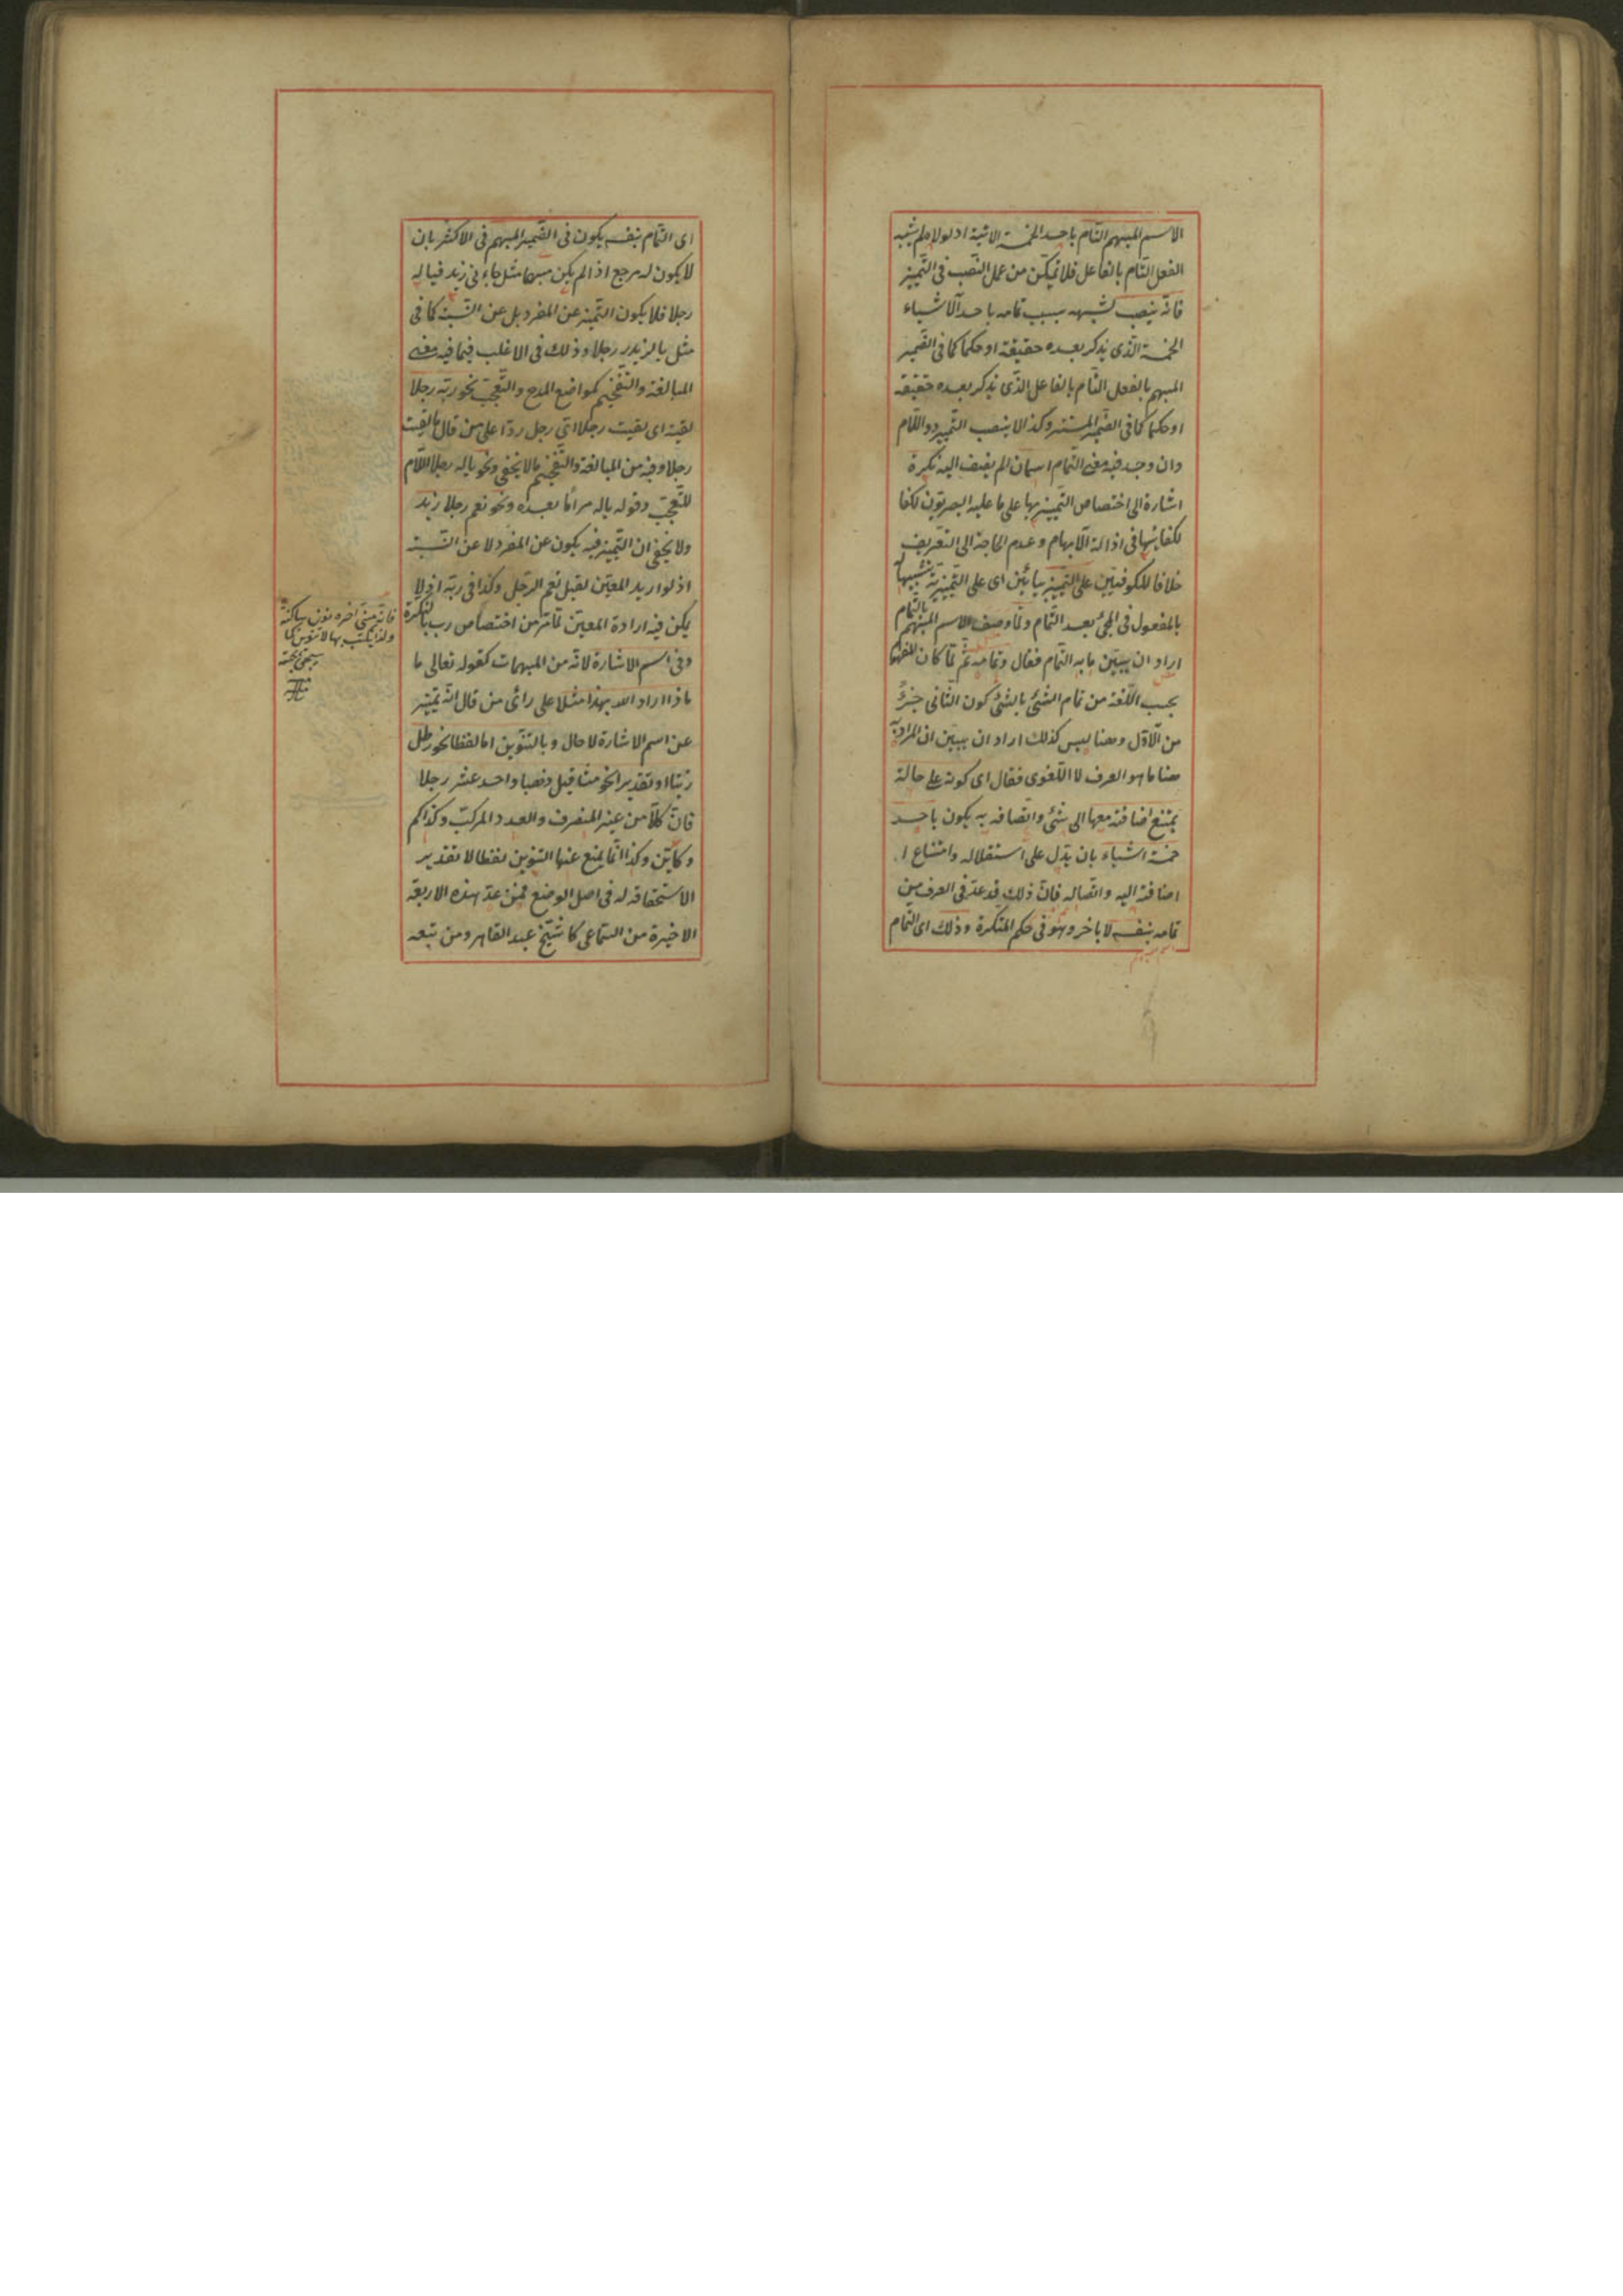 الاسم المبهم التام باحد الخمسة الاتية اذ لولاه لم يشبه
الفعل التام بالفاعل فلا تمكن من عمل النصب فى التمييز
فانه ينصب لشبهه بسبب تمامه باحد الاشياء
الخمسة الذى يذكر بعده حقيقة او حكما كما فى الضمير
المبهم بالفعل التام بالفاعل الذى يذكر بعده حقيقة
او حكما كما فى الضمير المستتر وكذا لا ينصب التمييز ذو اللام
وان وجد فيه معنى التمام اسمان لم يضف اليه نكرة
اشارة الى اختصاص التمييز بها على ما عليه البصريون لكفا
لكفايتها فى ازالة الابهام وعدم الحاجة الى التعريف
خلافا للكوفيين على التمييز بيائين اى على التمييزية تشبيها
بالمفعول فى المجئ بعد التمام ولما وصف الاسم المبهم بالتمام
اراد ان يبين ما به التمام فقال وتمامه ثم لما كان المفهوم
بحسب اللغة من تمام الشئ بالشئ كون الثانى جزءً
من الاول وههنا ليس كذلك اراد ان يبين ان المراد به
ههنا ما هو العرف لا اللغوى فقال اى كونه على حالة
يمتنع اضافته معها الى شئ واتصافه به يكون باحد
خمسة اشياء بان يدل على استقلاله وامتناع ا
اضافته اليه واتصاله فان ذلك قد عد فى العرف من
تمامه بنفسه لا باخر وهو فى حكم النكرة وذلك اى التمام
اى التمام بنفسه يكون فى الضمير المبهم فى الاكثر بان
لا يكون له مرجع اذ لم يكن مبهما مثل جاءنى زيد فياله
رجلا فلا يكون التمييز عن المفرد بل عن النسبة كما فى
مثل يا لزيد رجلا وذلك فى الاغلب فيما فيه معنى
المبالغة والتفخيم كمواضع المدح والتعجب نحو ربه رجلا
لقيته اى لقيت رجلا اى رجل ردا على من قال ما لقيت
رجلا وفيه من المبالغة والتفخيم ما لا يخفى ونحو ياله رجلا اللام
للتعجب وقوله ياله مر اما بعده ونحو نعم رجلا زيد
ولا يخفى ان التمييز فيه يكون عن المفرد لا عن النسبة
اذ لو اريد المعين لقيل نعم الرجل وكذا فى ربه اذ لا
يكن فيه ارادة المعين لما مر من اختصاص رب بالنكرة
وفى اسم الاشارة لانه من المبهمات كقوله تعالى ما
ماذا اراد الله بهذا مثلا على رائى من قال انه تمييز
عن اسم الاشارة لا حال وبالتنوين اما لفظا نحو رطل
زيتا او تقديرا نحو مثاقيل ذهبا واحد عشر رجلا
فان كلا من غير المنصرف والعدد المركب وكذا كم
وكاين وكذا انما يمنع عنها التنوين لفظا لا تقدير
الاستحقاقه له فى اصل الوضع فمن عد هذه الاربعة
الاخيرة من السماعى كا شيخ عبد القاهر ومن تبعه
فانه مبنى اخره نون ساكنة
ولذا يكتب بها لا تنوين كما
سيجئ بحثه